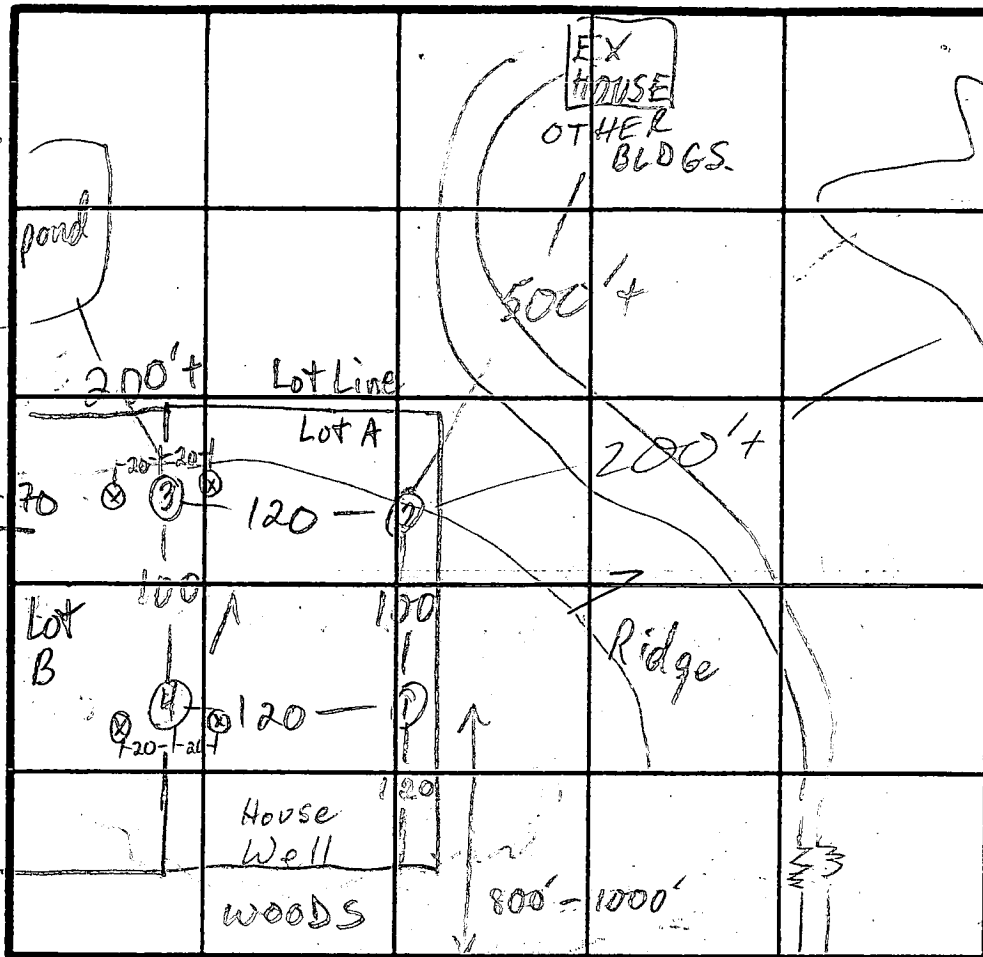 EX
HOUSE
OTHER
BLDGS.
pond
500'+
200'+
Lot Line
Lot A
200'+
20 20
70
3
120
2
100
100
Lot
B
Ridge
4
120
1
20 20
120
House
Well
WOODS
800' - 1000'